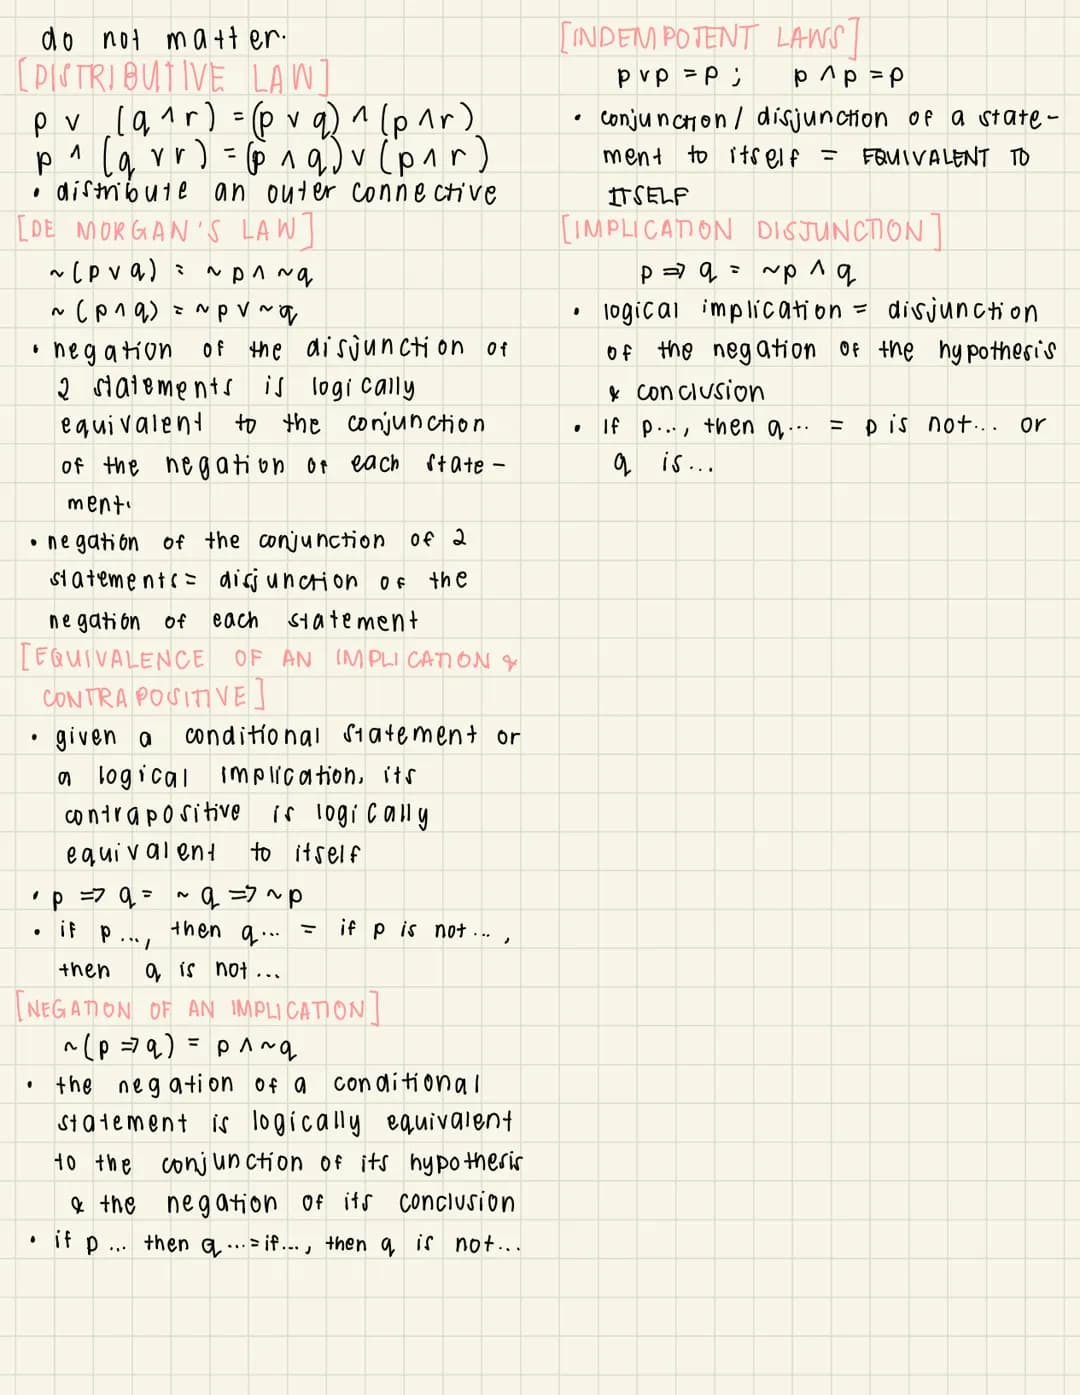 do not matter.
[DISTRIBUTIVE LAW]
p ∨ (q ∧ r) = (p ∨ q) ∧ (p ∧ r)
p ∧ (q ∨ r) = (p ∧ q) ∨ (p ∧ r)
• distribute an outer connective
[DE MORGAN'S LAW]
~(p ∨ q) = ~p ∧ ~q
~(p ∧ q) = ~p ∨ ~q
• negation of the disjunction of
2 statements is logically
equivalent to the conjunction
of the negation of each state-
ment.
• negation of the conjunction of 2
statements = disjunction of the
negation of each statement
[EQUIVALENCE OF AN IMPLICATION &
CONTRAPOSITIVE]
• given a conditional statement or
a logical implication, its
contrapositive is logically
equivalent to itself
• p ⇒ q = ~q ⇒ ~p
• if p..., then q... = if p is not...,
then q is not...
[NEGATION OF AN IMPLICATION]
~(p ⇒ q) = p ∧ ~q
• the negation of a conditional
statement is logically equivalent
to the conjunction of its hypothesis
& the negation of its conclusion
• if p... then q... = if..., then q is not...
[INDEMPOTENT LAWS]
p ∨ p = p; p ∧ p = p
• conjunction/ disjunction of a state-
ment to itself = EQUIVALENT TO
ITSELF
[IMPLICATION DISJUNCTION]
p ⇒ q = ~p ∧ q
• logical implication = disjunction
of the negation of the hypothesis
& conclusion
• If p..., then q... = p is not... or
q is...